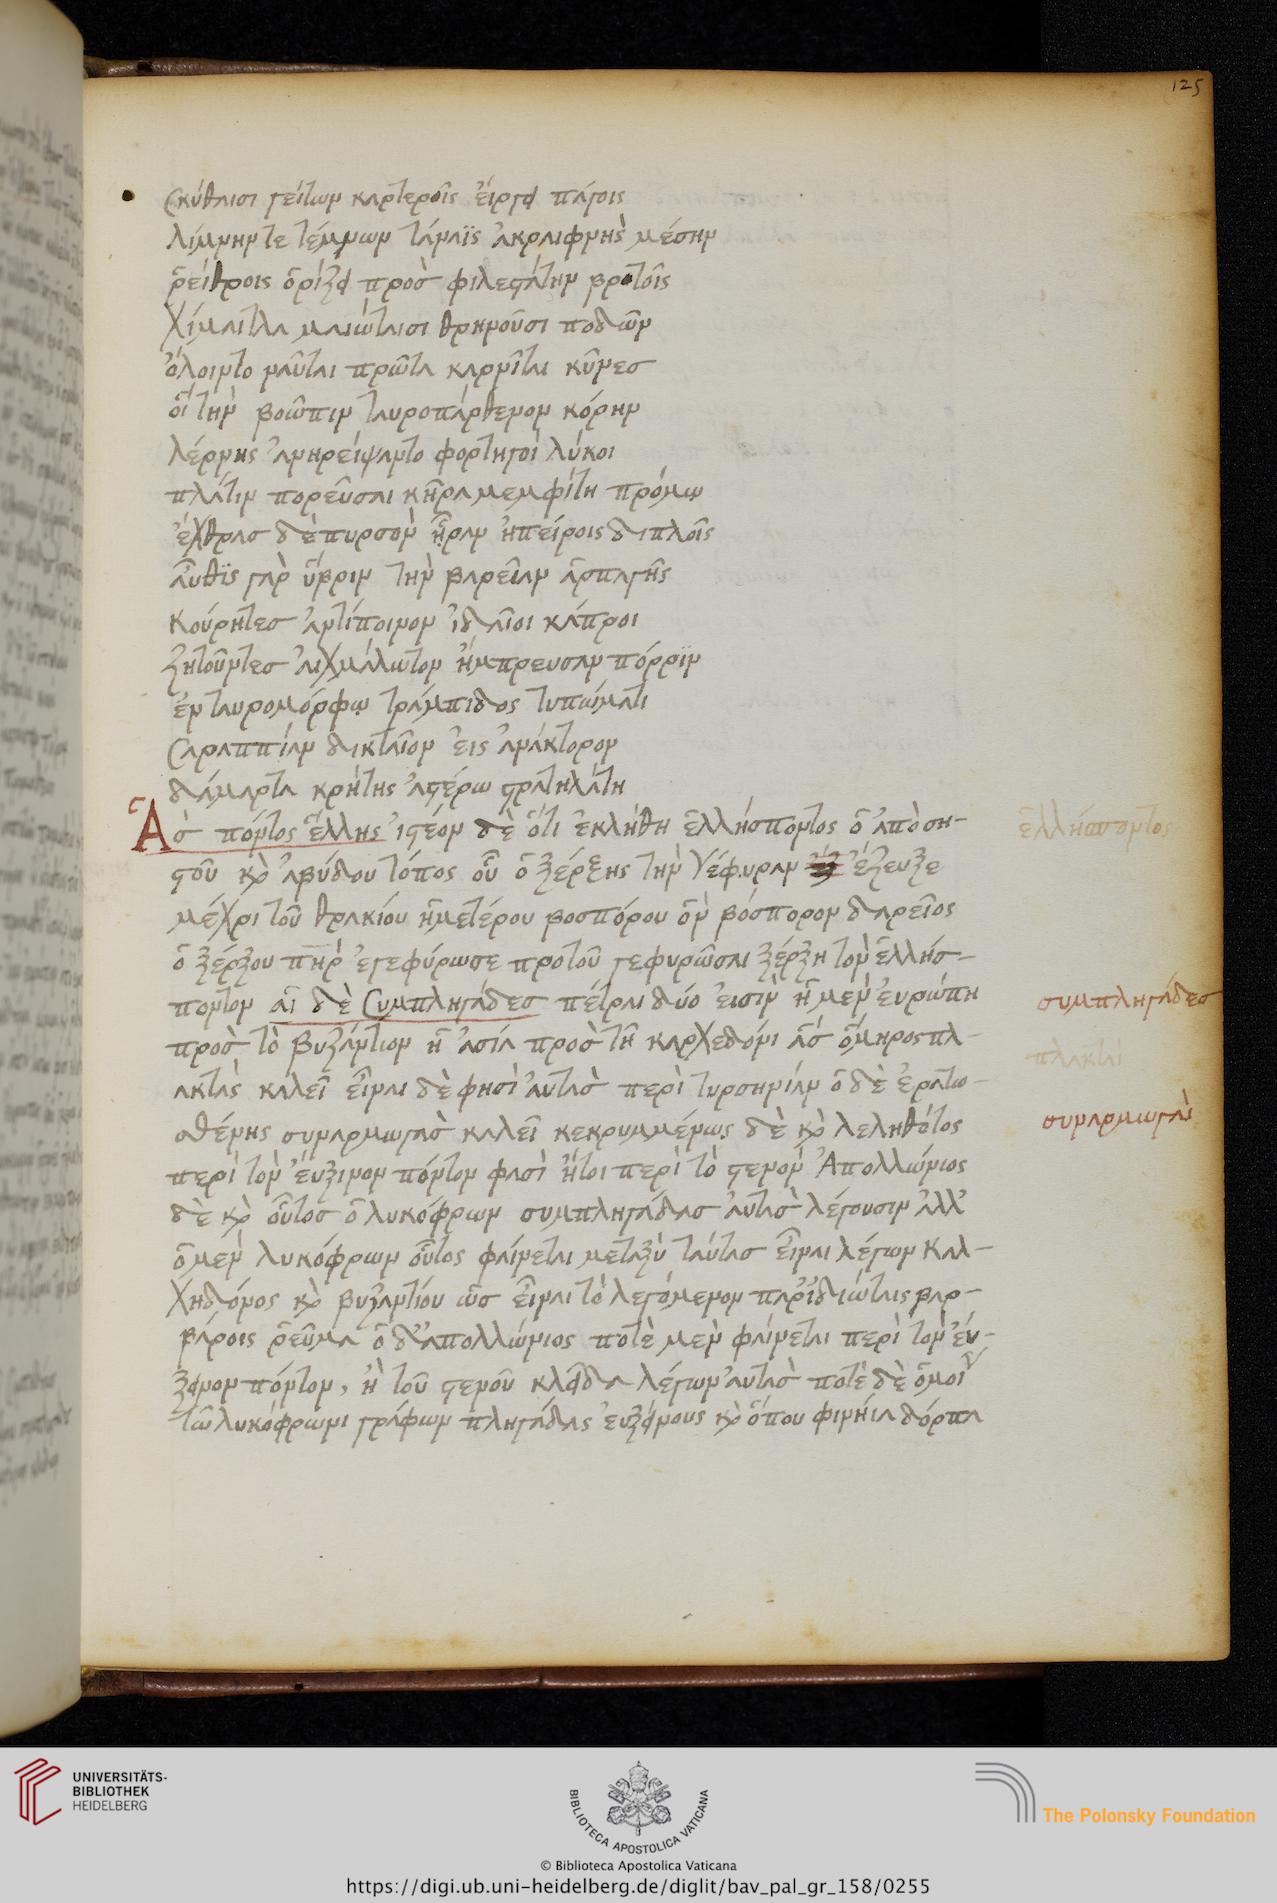 125
Σκύθαισι γείτων καρτεροῖς εἴργει πάγοις
λίμνην τε τέμνων τάναϊς ἀκραιφνὴς μέσην
ῥείθροις ὁρίζει προσ φιλεστάτην βροτοῖς
χίμαιτλα μαιώταισι θρηνοῦσι ποδῶν
ὄλοιντο ναῦται πρῶτα καρνῖται κῦνεσ
οἳ τὴν βοῶπιν ταυροπάρθενον κόρην
λέρνης ἀνηρείψαντο φορτηγοὶ λύκοι
πλᾶτιν πορεῦσαι κῆρα μεμφίτη πρόμῳ
ἔχθρασ δὲ πυρσὸν ἦραν ἠπείροις διπλοῖς
αὖθϊς γὰρ ὕβριν τὴν βαρεῖαν ἁρπαγῆς
κούρητεσ ἀντίποινον ἰδαῖοι κάπροι
ζητοῦντεσ αἰχμάλωτον ἤμπρευσαν πόρριν
ἐν ταυρομόρφῳ τράμπιδος τυπώματι
Σαραππίαν δικταῖον εἰς ἀνάκτορον
δάμαρτα κρήτης ἀστέρω στρατηλάτη
Ἅσ πόντος ἕλλης ἰστέον δὲ ὅτι ἐκλήθη ἑλλήσποντος ὁ ἀπὸ ση-
στοῦ καὶ ἀβύδου τόπος οὗ ὁ ξέρξης τὴν γέφυραν ἔζευξε
μέχρι τοῦ θρακίου ἡμετέρου βοσπόρου ὃν βόσπορον δαρεῖος
ὁ ξέρξου πὴρ ἐγεφύρωσε προτοῦ γεφυρῶσαι ξέρξη τὸν ἑλλήσ-
ποντον αἱ δὲ Συμπληγάδεσ πέτραι δύο εἰσὶν ἡ μὲν εὐρώπη
προσ τὸ βυζάντιον ἡ ἀσία προσ τῆ καρχεδόνι ἅσ ὅμηρος πλ-
ακτὰς καλεῖ εἶναι δὲ φησὶ αὐτασ περὶ τυρσηνίαν ὁ δὲ ἐρατο-
σθένης συναρμωγασ καλεῖ κεκρυμμένως δὲ καὶ λεληθότος
περὶ τὸν εὔξινον πόντον φασὶ ἤτοι περὶ τὸ στενὸν Ἀπολλώνιος
δὲ καὶ οὗτοσ ὁ λυκόφρων συμπληγάδασ αὐτασ λέγουσιν ἀλλ'
ὁ μὲν λυκόφρων οὗτος φαίνεται μεταξὺ ταύτασ εἶναι λέγων καλ-
χηδόνος καὶ βυζαντίου ὡσ εἶναι τὸ λεγόμενον παρ' ἰδιώταις βαρ-
βάροις ῥεῦμα ὁ δ' ἀπολλώνιος ποτὲ μὲν φαίνεται περὶ τὸν εὔ-
ξεινον πόντον, ἢ τοῦ στενοῦ κλεῖδα λέγων αὐτασ ποτὲ δὲ ὅμοι
τῶ λυκόφρωνι γράφων πληγάδας εὐξείνους καὶ ὅπου φινήϊα δόρπα
ἑλλήσποντος
συμπληγάδεσ
πλακταὶ
συναρμωγαὶ
UNIVERSITÄTS-
BIBLIOTHEK
HEIDELBERG
BIBLIOTECA APOSTOLICA VATICANA
The Polonsky Foundation
© Biblioteca Apostolica Vaticana
https://digi.ub.uni-heidelberg.de/diglit/bav_pal_gr_158/0255